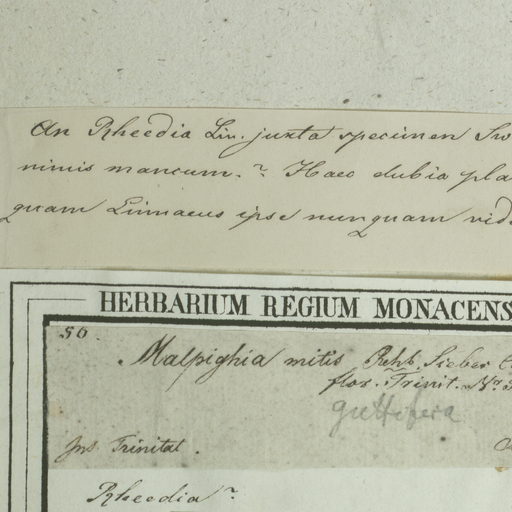 An Rheedia Lin. juxta specimen Sw
nimis mancum.? Haec dubia pla
quam Linnaeus ipse nunquam vid
HERBARIUM REGIUM MONACENS
56
Malpighia mitis Rchb. Sieber
flor. Trinit. No.
guttifera
Ins Trinitat.
Rheedia?